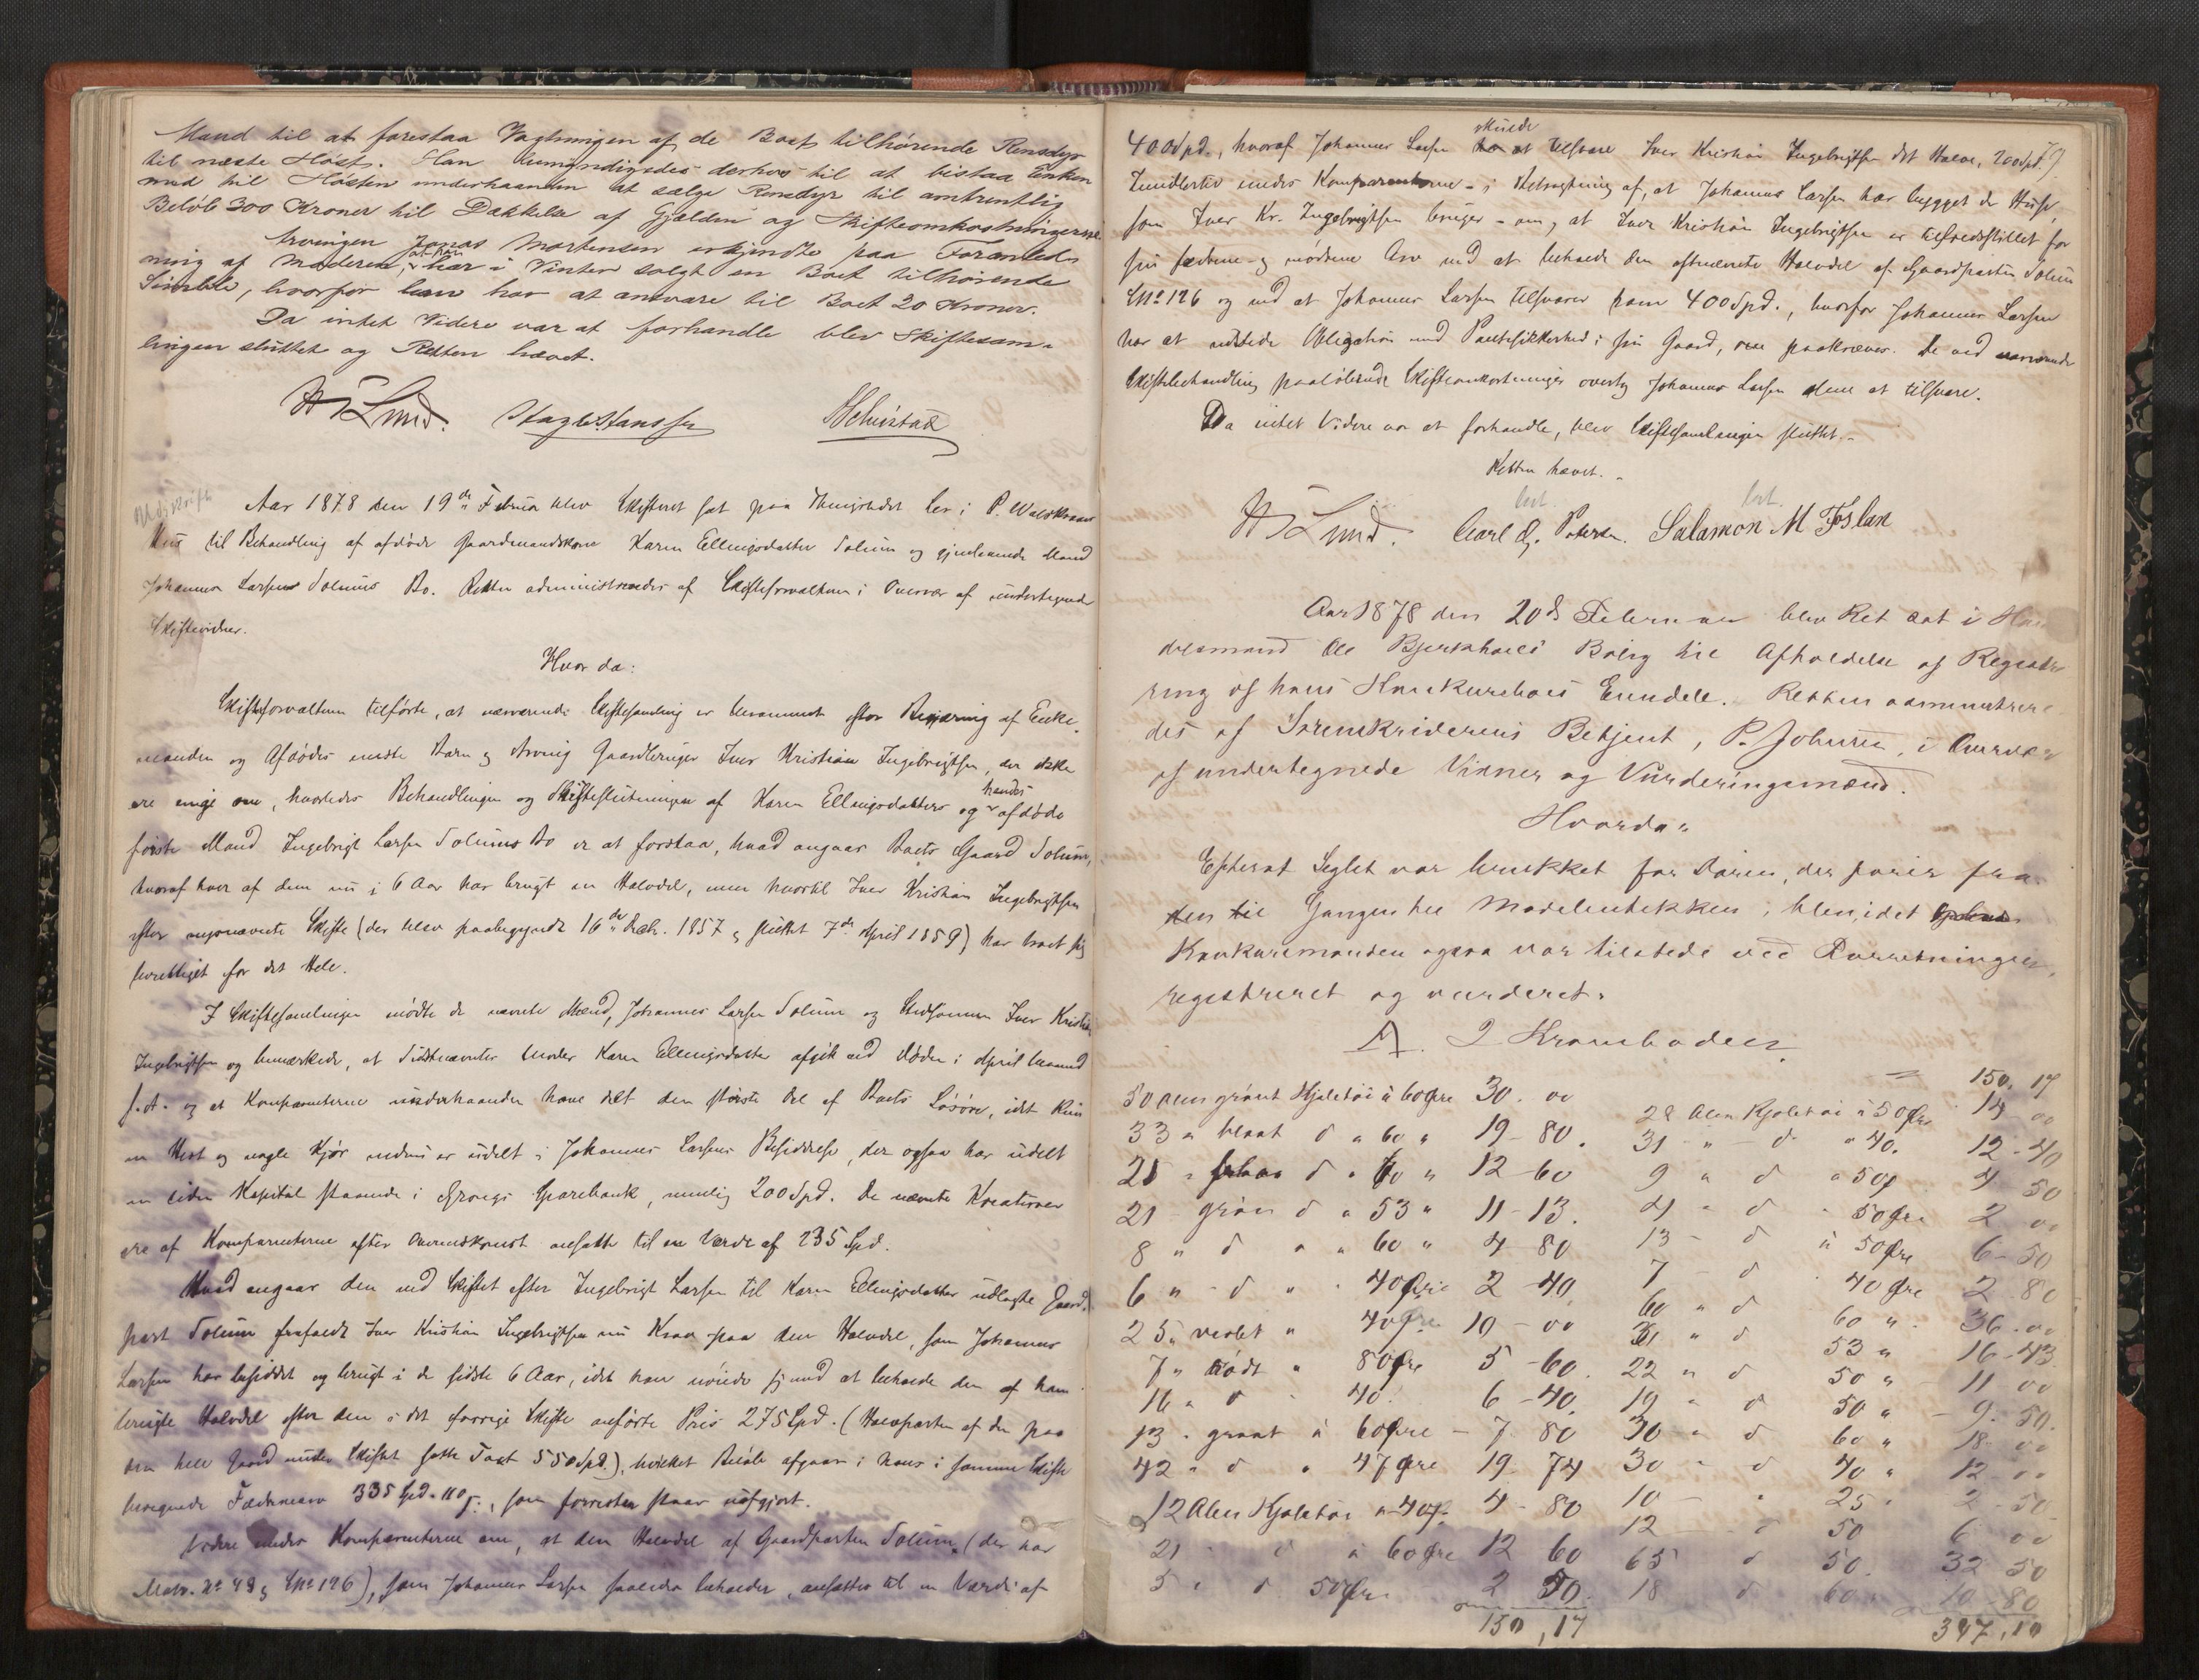 Mand til at forestaa Vogtningen af de Boet tilhørende Rensdyr
til næste Høst. Han bemyndigedes derhos til at bistaa Enken
med til Høsten underhaanden at sælge Rensdyr til omtrentlig
Beløb 300 Kroner til Dækkelse af Gjælden og Skifteomkostningerne
Arvingen Jonas Mortensen erkjendte paa Foranled-
ning af Moderen, at han har i Vinter solgt en Boet tilhørende
Simle, hvorfor han har at ansvare til Boet 20 Kroner.
Da intet Videre var at forhandle blev Skiftesam-
lingen sluttet og Retten hævet.
Lund. Hansen
Udskrift
Aar 1878 den 19de Februar blev Skifteret sat paa Thingstedet Len i P. Walskraas
Hus til Behandling af afdøde Gaardmandskone Karen Ellingsdatter Solum og gjenlevende Mand
Johannes Larsens Solums Bo. Retten administreredes af Skifteforvalteren i Overvær af undertegnede
Skiftevidner.
Hvor da:
Skifteforvalteren tilførte, at nærværende Skiftesamling er berammet efter Begjæring af Enke-
manden og Afdødes eneste Barn og Arving Gaardbruger Iver Kristian Ingebrigtsen, der ikke
ere enige om, hvorledes Behandlingen og Skifteslutningen af Karen Ellingsdatters og hendes afdøde
første Mand Ingebrigt Larsen Solums Bo er at forstaa, hvad angaar Boets Gaard Solum,
hvoraf hver af dem nu i 6 Aar har brugt en Halvdel, men hvortil Iver Kristian Ingebrigtsen
efter ovennævnte Skifte (der blev paabegyndt 16de Decbr. 1857 og sluttet 7de April 1859) har troet sig
berettiget for det Hele.
I Skiftesamlingen mødte de nævnte Mænd, Johannes Larsen Solum og Stedsønnen Iver Kristian
Ingebrigtsen og bemærkede, at Sidstnævntes Moder Karen Ellingsdatter afgik ved Døden i April Maaned
f.A. og at Komparenterne underhaanden have delt den største Del af Boets Løsøre, idet kun
en Hest og nogle Kjør endnu er udelt i Johannes Larsens Besiddelse, der ogsaa har udelt
en liden Kapital staaende i Grongs Sparebank, nemlig 200 Spd. De nævnte Kreaturer
ere af Komparenterne efter Overenskomst ansatte til en Værdi af 235 Spd.
Hvad angaar den ved Skiftet efter Ingebrigt Larsen til Karen Ellingsdatter udlagte Gaard-
part Solum frafaldt Iver Kristian Ingebrigtsen nu Krav paa den Halvdel, som Johannes
Larsen har besiddet og brugt i de sidste 6 Aar, idet han nøiede sig med at beholde den af ham
brugte Halvdel efter den i det forrige Skifte anførte Pris 275 Spd. (Halvparten af den paa
den hele Gaard under Skiftet satte Taxt 550 Spd.), hvilket Beløb afgaar i hans i samme Skifte
beregnede Fædrenearv 335 Spd. 110 s., som forresten staar uafgjort.
Videre enedes Komparenterne om, at den Halvdel af Gaardparten Solum (der har
Matr. No 49 og LNo 126), som Johannes Larsen saaledes beholder, ansættes til en Værdi af
79
400 Spd., hvoraf Johannes Larsen skulde at tilsvare Iver Kristian Ingebrigtsen det Halve, 200 Spd.
Imidlertid enedes Komparenterne - i Betragtning af, at Johannes Larsen har bygget de Huse,
som Iver Kr. Ingebrigtsen bruger - om, at Iver Kristian Ingebrigtsen er tilfredsstillet for
sin fædrene og mødrene Arv ved at beholde den oftnævnte Halvdel af Gaardparten Solum
LNo 126 og ved at Johannes Larsen tilsvarer ham 400 Spd., hvorfor Johannes Larsen
har at udstede Obligation med Pantesikkerhed i sin Gaard, om paakræves. De ved nærværende
Skiftebehandling paaløbende Skifteomkostninger overtog Johannes Larsen alene at tilsvare.
Da intet Videre var at forhandle, blev Skiftesamlingen sluttet.-
Retten hævet.
Lund. Carl O. Petersen. Salamon M Foslan
Aar 1878 den 20de Februar blev Ret sat i Han-
delsmand Ole Bjerkhaels Bolig til Afholdelse af Registre-
ring af hans Konkursboes Eiendele. Retten administrere-
des af Sorenskriverens Betjent, P. Johnsen, i Overvær
af undertegnede Vidner og Vurderingsmænd.
Hvorda:
Efterat Seglet var brukket for Døren, der fører fra
den til Gangen til blev, idet
Konkursmanden ogsaa var tilstede ved Forretningen,
registreret og vurderet.
A. I Kramboden
50 Alen grønt Kjoletøi à 60 Øre 30. 00
33 " blaat d " 60 " 19 - 80.
21 " d " 60 " 12 - 60
21 - grøn d " 53 " 11 - 13.
8 " d " " 60 " 4 80
6 " - d " 40 Øre 2 - 40
25 " violet " 40 Øre 10 - 00
7 " rødt " 80 Øre 5 - 60.
16 " d " 40. 6 - 40.
13 " graat à 60 Øre - 7. 80
42 " d " 47 Øre 19. 74
12 Alen Kjoletøi à 40 Ø. 4 - 80
21 " d à 60 Øre 12 60
5 " d 50 Øre 2 50.
150, 17
150. 17
28 Alen Kjoletøi à 50 Øre 14 00
31 " - d " 40. 12 - 40
9 " d " 50 Ø 4 50
4 " d " 50 Øre 2 00
13 - d à 50 Øre 6 - 50
7 - d 40 Øre 2. 80
60 " d 60 " 36. 00
31 " d 53 " 16 - 43
22 " d 50 " 11 00
19 " d 50 " - 9. 50.
30 " d 60 " 18. 00
30 " d 40 " 12 00
10 - " 25 " 2 - 50
12 d 50 6 00
65 d 50. 32 50
18 d 60 " 10 80
347, 10